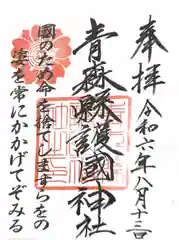 奉拝
令和六年八月十三日
青森縣護國神社
國のため命を捨てしますらをの
姿を常にかかげてぞみる